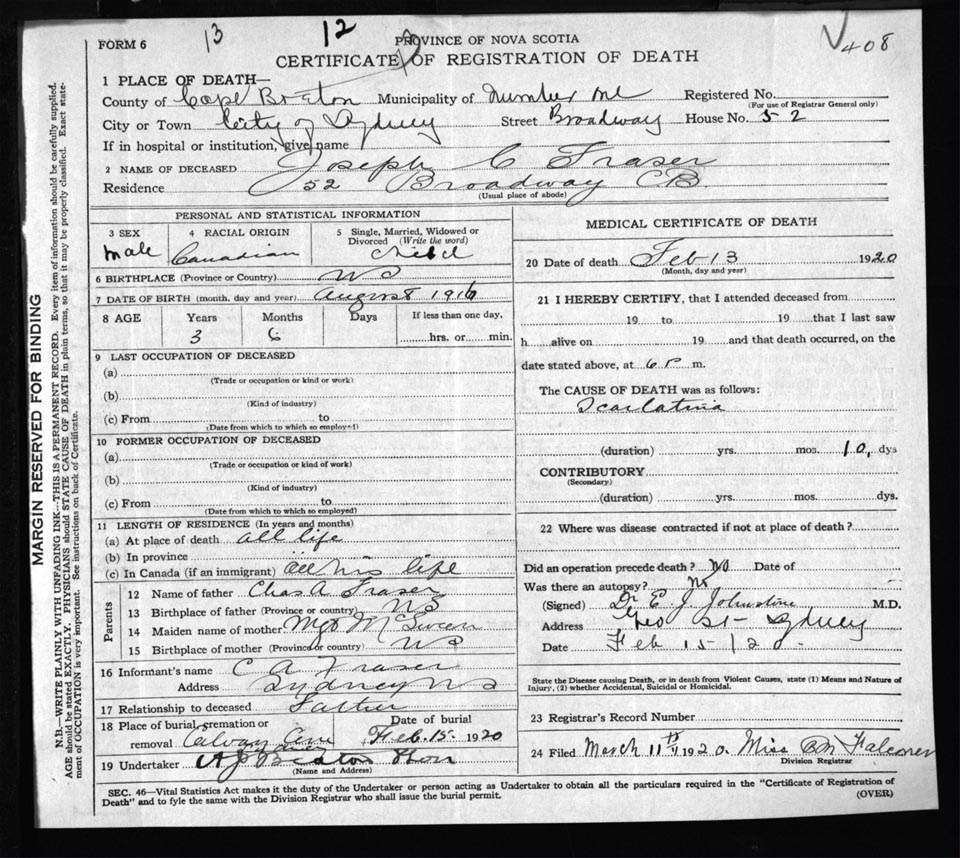 FORM 6
13
12
PROVINCE OF NOVA SCOTIA
408
CERTIFICATE OF REGISTRATION OF DEATH
1 PLACE OF DEATH—
County of Cape Breton Municipality of Number one Registered No.
(For use of Registrar General only)
City or Town City of Sydney Street Broadway House No. 52
If in hospital or institution, give name
2 NAME OF DECEASED Joseph C Fraser
Residence 52 Broadway C.B.
(Usual place of abode)
PERSONAL AND STATISTICAL INFORMATION
3 SEX
male
4 RACIAL ORIGIN
Canadian
5 Single, Married, Widowed or Divorced (Write the word)
6 BIRTHPLACE (Province or Country) NS
7 DATE OF BIRTH (month, day and year) August 1916
8 AGE Years Months Days If less than one day,
3 6 hrs. or min.
9 LAST OCCUPATION OF DECEASED
(a)
(Trade or occupation or kind or work)
(b)
(Kind of industry)
(c) From to
(Date from which to which so employed)
10 FORMER OCCUPATION OF DECEASED
(a)
(Trade or occupation or kind of work)
(b)
(Kind of industry)
(c) From to
(Date from which to which so employed)
11 LENGTH OF RESIDENCE (In years and months)
(a) At place of death all life
(b) In province
(c) In Canada (if an immigrant) all his life
Parents
12 Name of father Chas A Fraser
13 Birthplace of father (Province or country) NS
14 Maiden name of mother
15 Birthplace of mother (Province or country) NS
16 Informant's name C A Fraser
Address Sydney NS
17 Relationship to deceased Father
18 Place of burial, cremation or removal Date of burial
Feb. 15. 1920
19 Undertaker A J Beaton
(Name and Address)
MEDICAL CERTIFICATE OF DEATH
20 Date of death Feb 13 1920
(Month, day and year)
21 I HEREBY CERTIFY, that I attended deceased from
19 to 19 that I last saw
h alive on 19 and that death occurred, on the
date stated above, at 6 P m.
The CAUSE OF DEATH was as follows:
Scarlatina
(duration) yrs. mos. 10, dys
CONTRIBUTORY
(Secondary)
(duration) yrs. mos. dys.
22 Where was disease contracted if not at place of death?
Did an operation precede death? No Date of
Was there an autopsy? No
(Signed) Dr E. J. Johnstone M.D.
Address Geo St- Sydney
Date Feb 15/20
State the Disease causing Death, or in death from Violent Causes, state (1) Means and Nature of
Injury, (2) whether Accidental, Suicidal or Homicidal.
23 Registrar's Record Number
24 Filed March 11th 1920. Miss Falconer
Division Registrar
SEC. 46—Vital Statistics Act makes it the duty of the Undertaker or person acting as Undertaker to obtain all the particulars required in the "Certificate of Registration of
Death" and to fyle the same with the Division Registrar who shall issue the burial permit. (OVER)
MARGIN RESERVED FOR BINDING
N.B.—WRITE PLAINLY WITH UNFADING INK—THIS IS A PERMANENT RECORD. Every item of information should be carefully supplied.
AGE should be stated EXACTLY. PHYSICIANS should STATE CAUSE OF DEATH in plain terms, so that it may be properly classified. Exact statement of OCCUPATION is very important. See instructions on back of Certificate.